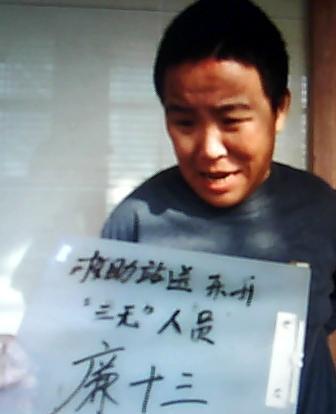 救助站送来
"三无"人员
廉十三